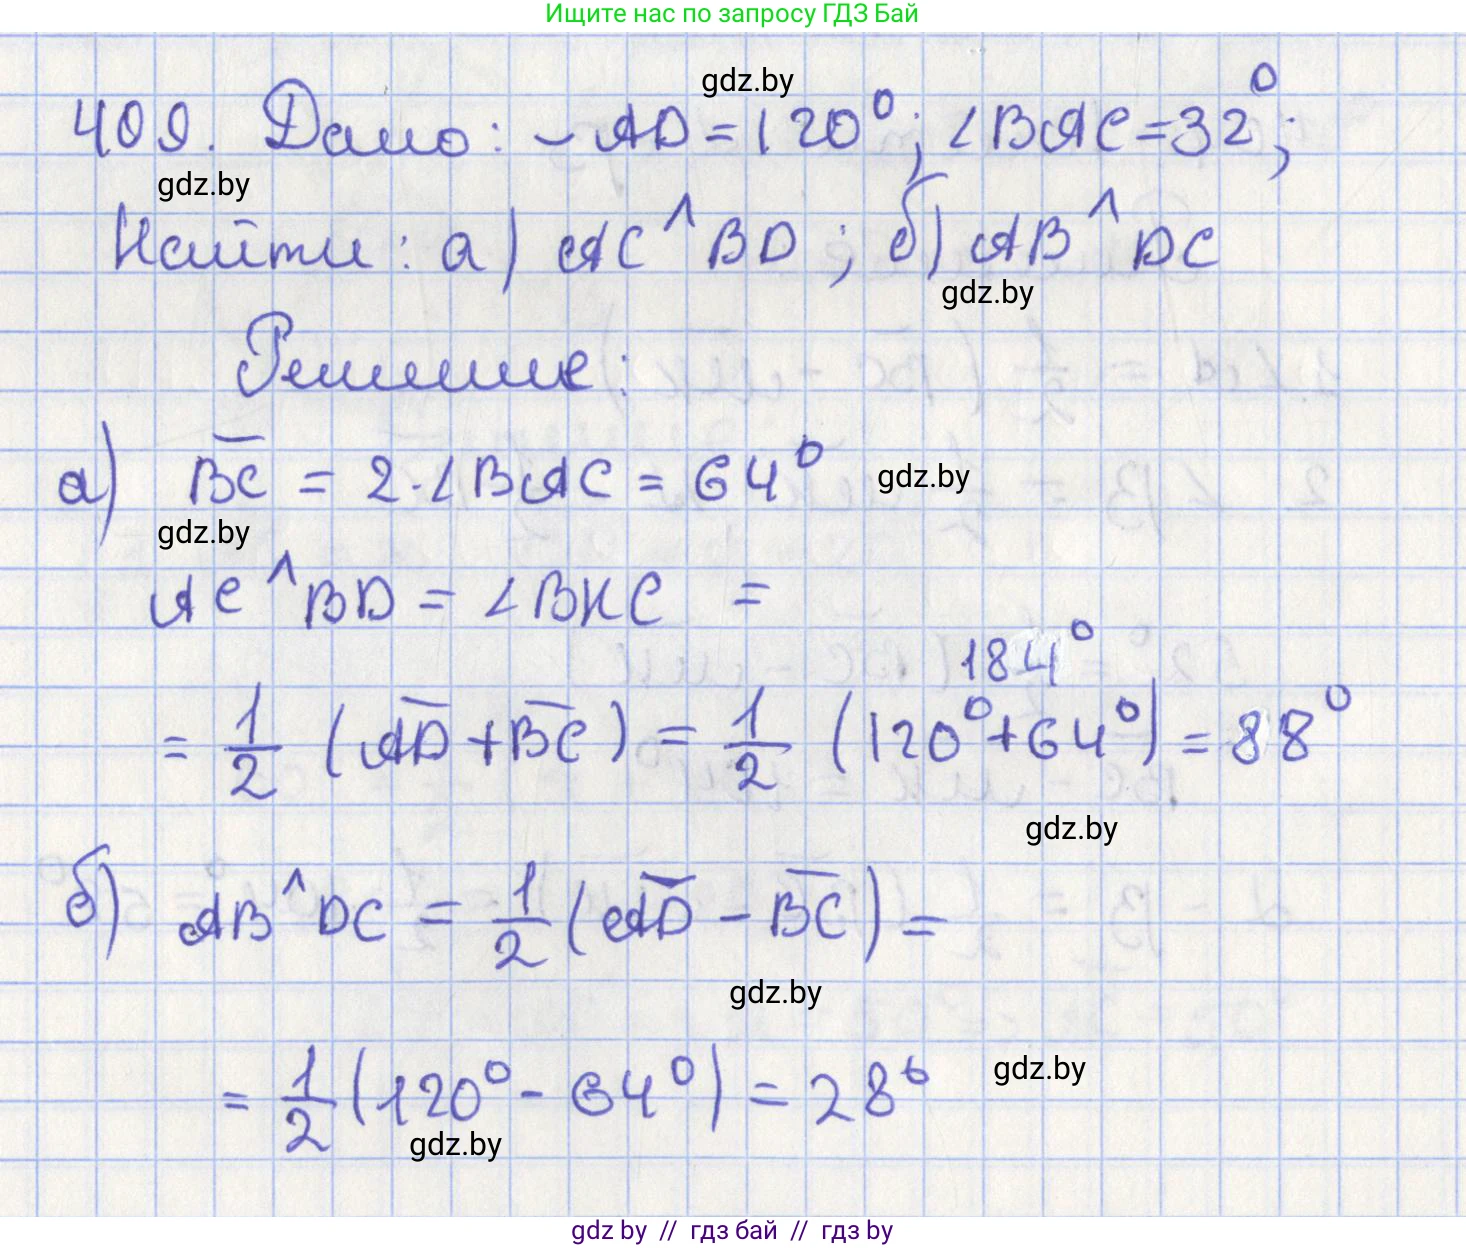 Ищите нас по запросу ГДЗ Бай
gdz.by
409. Дано: ⌣AD = 120°; ∠BAC = 32°;
gdz.by
Найти: а) AC ^ BD; б) AB ^ DC
gdz.by
Решение:
а) ⌣BC = 2·∠BAC = 64°
gdz.by
gdz.by
AC ^ BD = ∠BKC =
184°
= 1/2 (⌣AD + ⌣BC) = 1/2 (120° + 64°) = 88°
gdz.by
б) AB ^ DC = 1/2 (⌣AD - ⌣BC) =
gdz.by
= 1/2 (120° - 64°) = 28°
gdz.by
gdz.by
gdz by // гдз бай // гдз by